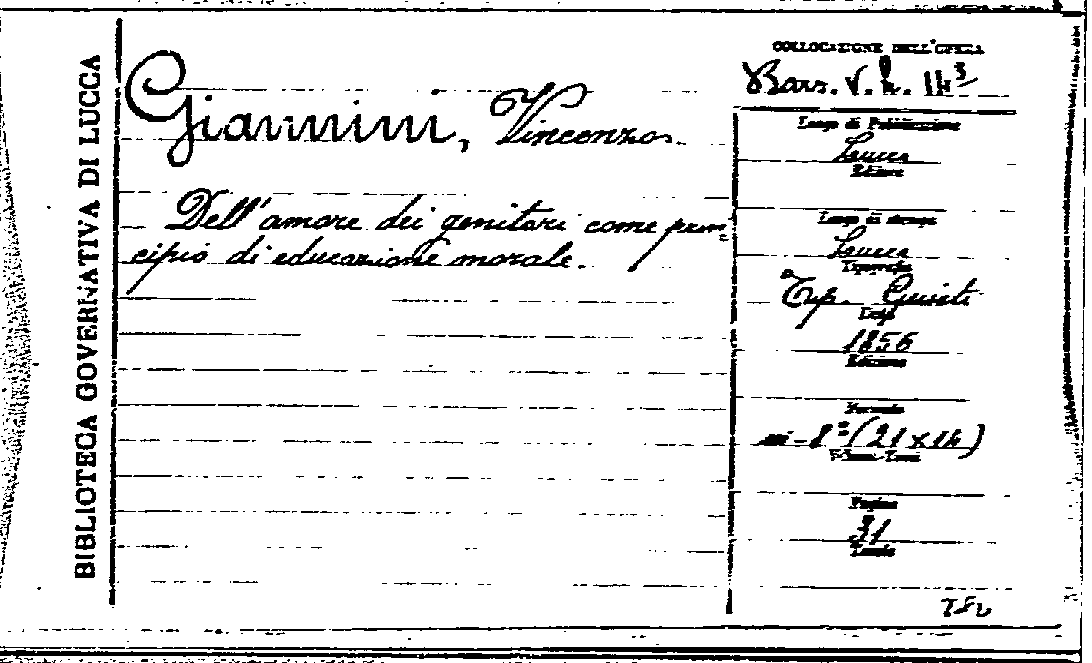 BIBLIOTECA GOVERNATIVA DI LUCCA
Giannini, Vincenzo.
Dell'amore dei genitori come prin-
cipio di educazione morale.
COLLOCAZIONE DELL'OPERA
Bors. V. h. 14³
Luogo di Pubblicazione
Lucca
Editore
Luogo di stampa
Lucca
Tipografia
Tip. Giusti
Data
1856
Edizione
Formato
in-8° (21 x 14)
Pagine
31
Tavole